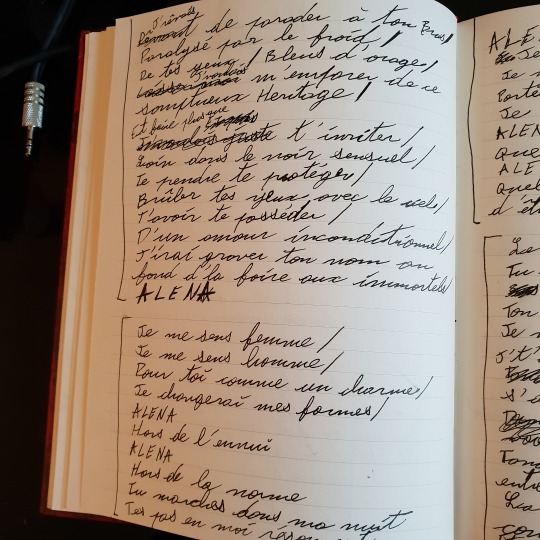 J'rêvais
de parader à ton Bras/
Paralysé par le froid/
De tes yeux/ Bleus d'orage/
J'voudrais m'emparer de ce
somptueux Heritage/
Et faire plus que
t'inviter/
Loin dans le noir sensuel/
Te prendre te protéger/
Brûler tes yeux avec le
T'avoir te posseder/
D'un amour inconditionnel/
J'irai graver ton nom au
fond d'la foire aux immortels/
ALENA
Je me sens femme/
Je me sens homme/
Pour toi comme un charme/
Je changerai mes formes/
ALENA
Hors de l'ennui
ALENA
Hors de la norme
Tu marches dans ma nuit
Tes pas en moi
ALE
Je
Je
Porte
Je
ALEN
Que
ALE
Quel
d'êt
Le
Tu
Ton
Je
J't'
s'
Tom
entr